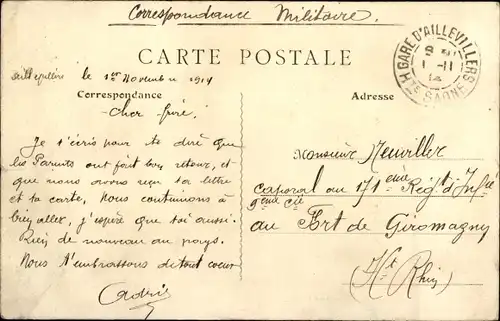 Correspondance Militaire.
CARTE POSTALE
GARE D'AILLEVILLERS
Hte SAÔNE
le 1er Novembre 1914
Correspondance
Adresse
Cher frère.
Je t'écris pour te dire que
les Parents ont fait bon retour, et
que nous avons reçu ta lettre
et ta carte, Nous continuons à
bien aller, j'espère que toi aussi.
Rien de nouveau au pays.
Nous t'embrassons de tout coeur
Monsieur Neuviller
caporal au 171ème Régt d'Infrie
9ème Cie
au Fort de Giromagny
(Ht Rhin)